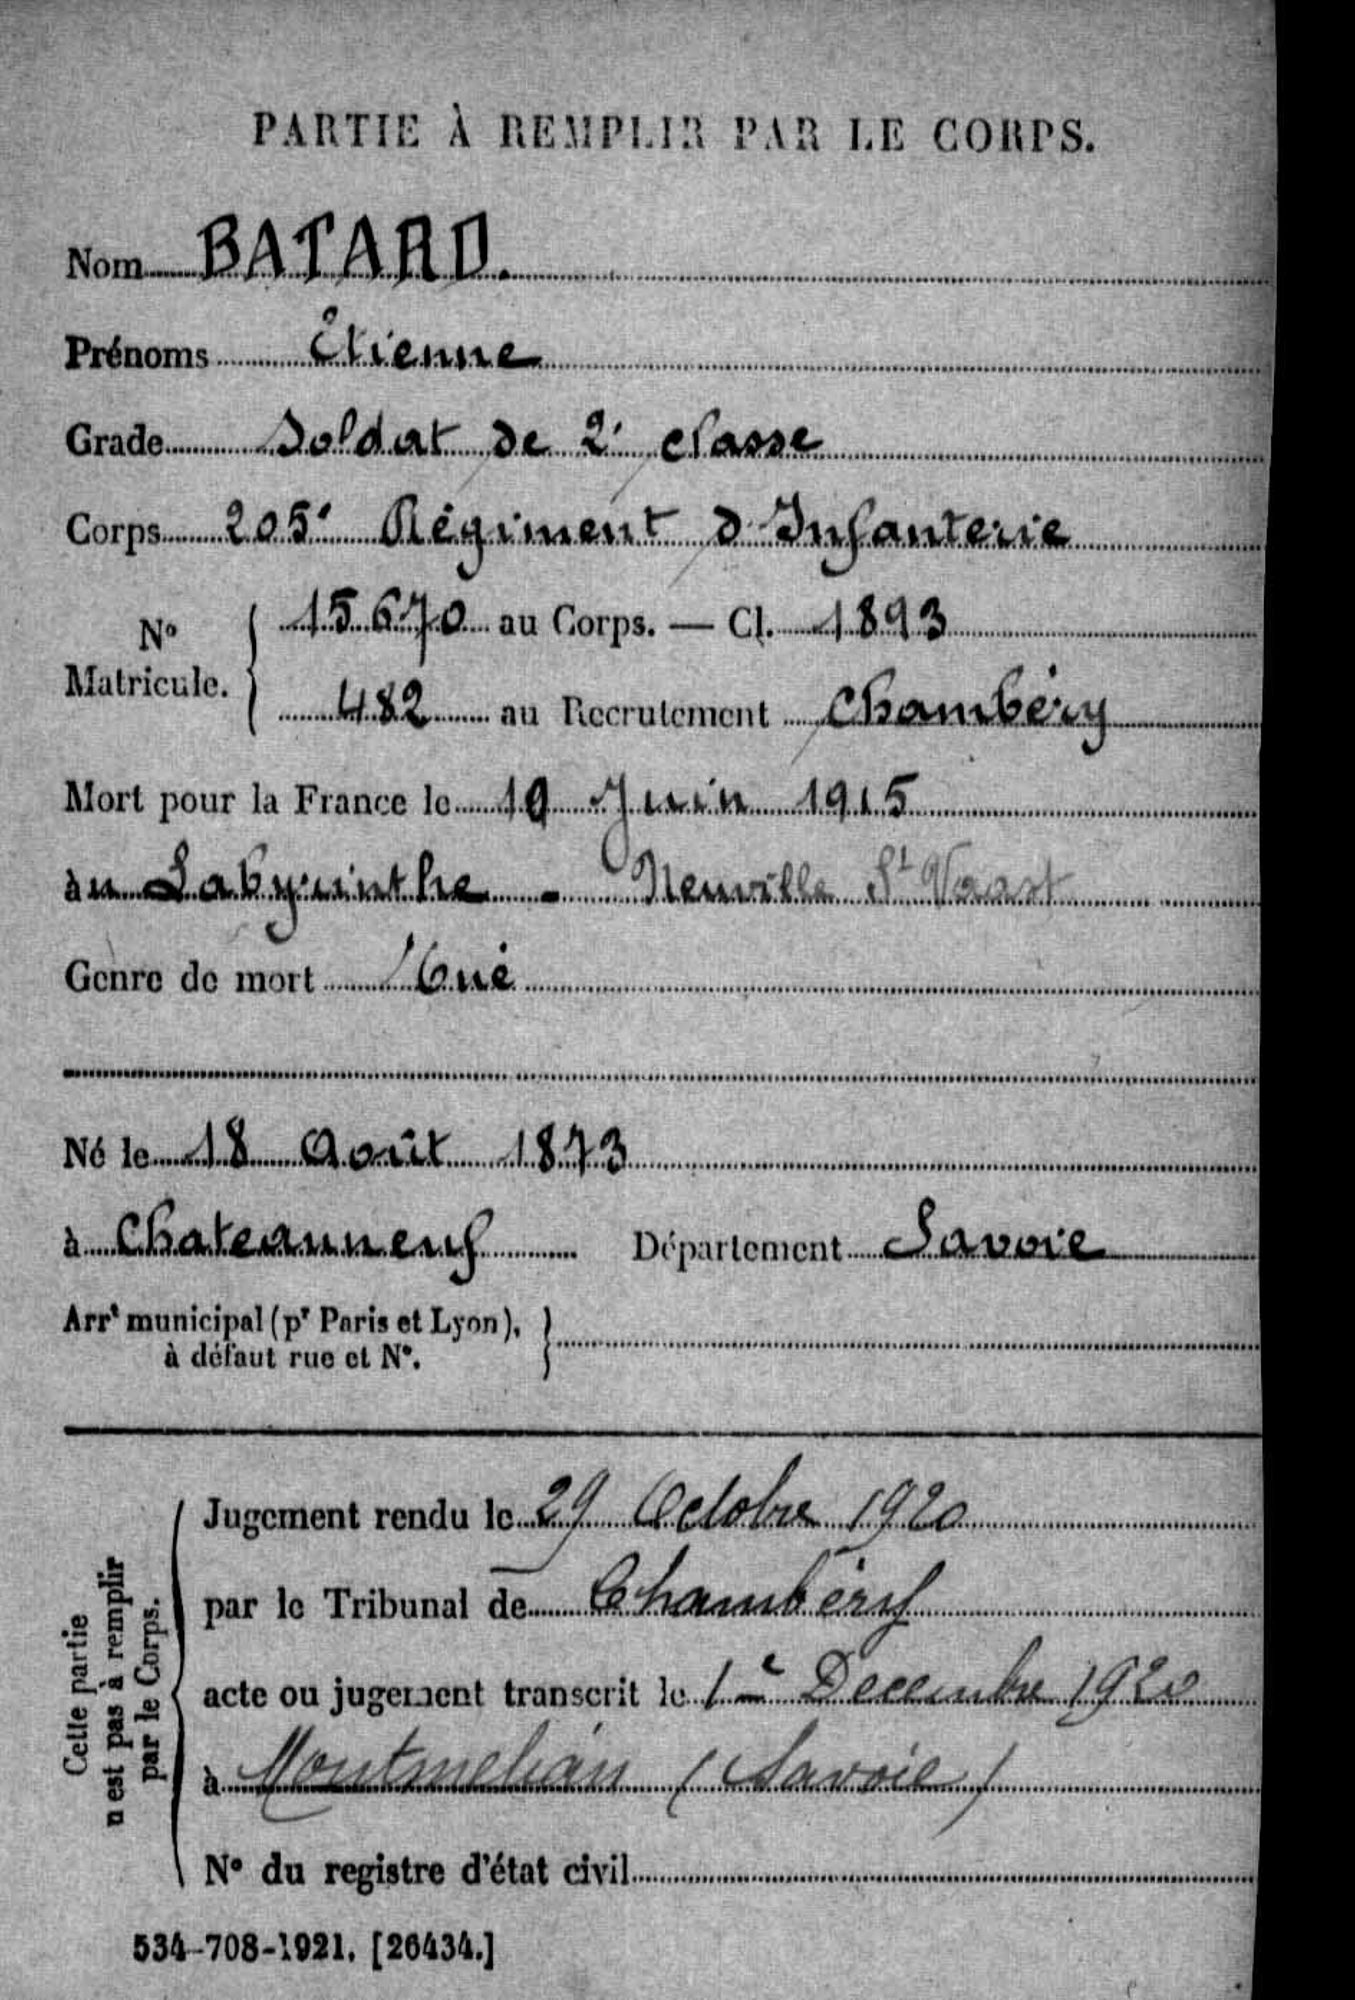 PARTIE À REMPLIR PAR LE CORPS.
Nom BATARD.
Prénoms Etienne
Grade Soldat de 2e classe
Corps 205e Régiment d'Infanterie
No Matricule. 15670 au Corps. — Cl. 1893
482 au Recrutement Chambéry
Mort pour la France le 19 Juin 1915
au Labyrinthe - Neuville St Vaast
Genre de mort Tué
Né le 18 Août 1873
à Chateauneuf Département Savoie
Arrt municipal (pr Paris et Lyon),
à défaut rue et No.
Cette partie
n'est pas à remplir
par le Corps.
Jugement rendu le 29 Octobre 1920
par le Tribunal de Chambéry
acte ou jugement transcrit le 1e Decembre 1920
à Montmelian (Savoie)
No du registre d'état civil
534-708-1921. [26434.]